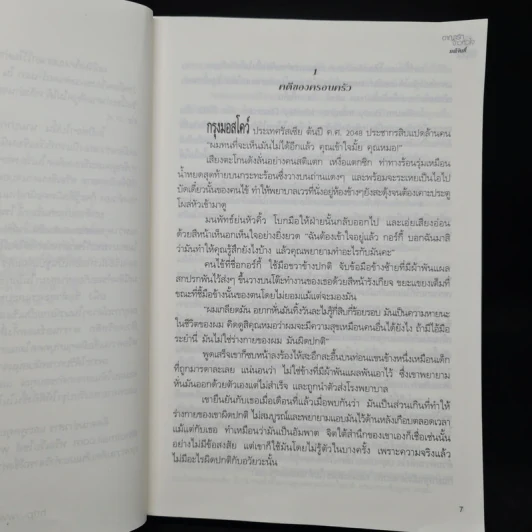 1
คดีของครอบครัว
กรุงมอสโคว์ ประเทศรัสเซีย ต้นปี ค.ศ. 2048 ประชากรสิบแปดล้านคน
“ผมทนที่จะเห็นมันไม่ได้อีกแล้ว คุณเข้าใจมั้ย คุณหมอ!”
เสียงตะโกนดังลั่นอย่างคนสติแตก เหงื่อแตกซิก ท่าทางร้อนรุ่มเหมือน
น้ำหยดสุดท้ายบนกระทะร้อนซึ่งวางบนถ่านแดงๆ และพร้อมจะระเหยเป็นไอไป
บัดเดี๋ยวนั้นของคนไข้ ทำให้พยาบาลเวรที่นั่งอยู่ห้องข้างๆยังสะดุ้งจนต้องเคาะประตู
โผล่หัวเข้ามาดู
มนพัทธ์ย่นหัวคิ้ว โบกมือให้ฝ่ายนั้นกลับออกไป และเอ่ยเสียงอ่อน
ด้วยสีหน้าเห็นอกเห็นใจอย่างยิ่งยวด “ฉันต้องเข้าใจอยู่แล้ว กอร์กี้ บอกฉันมาสิ
ว่ามันทำให้คุณรู้สึกยังไงบ้าง แล้วคุณพยายามทำอะไรกับมันคะ”
คนไข้ที่ชื่อกอร์กี้ ใช้มือขวาข้างปกติ จับข้อมือข้างซ้ายที่มีผ้าพันแผล
สกปรกพันไว้ส่งๆ ขึ้นวางบนโต๊ะทำงานของเธอด้วยสีหน้ารังเกียจ ขยะแขยงเต็มที่
ขณะที่ชี้มือข้างนั้นของตนโดยไม่ยอมแม้แต่จะมองมัน
“ผมเกลียดมัน อยากหั่นมันทิ้งวันละไม่รู้กี่สิบกี่ร้อยรอบ มันเป็นความหายนะ
ในชีวิตของผม คิดดูสิคุณหมอว่าผมจะมีความสุขเหมือนคนอื่นได้ยังไง ถ้ามีไอ้มือ
ระยำนี่ มันไม่ใช่ร่างกายของผม มันผิดปกติ”
พูดเสร็จเขาก็ซบหน้าลงร้องไห้สะอึกสะอื้นบนท่อนแขนข้างหนึ่งเหมือนเด็ก
ที่ถูกมารดาละเลย แน่นอนว่า ไม่ใช่ข้างที่มีผ้าพันแผลพันเอาไว้ ซึ่งเขาพยายาม
หั่นมันออกด้วยตัวเองแต่ไม่สำเร็จ และถูกนำตัวส่งโรงพยาบาล
เขายืนยันกับเธอเมื่อเดือนที่แล้วเมื่อพบกันว่า มันเป็นส่วนเกินที่ทำให้
ร่างกายของเขาผิดปกติ ไม่สมบูรณ์และพยายามแอบมันไว้ด้านหลังเกือบตลอดเวลา
แม้แต่กับเธอ ทำเหมือนว่ามันเป็นอัมพาต จิตใต้สำนึกของเขาเองก็เชื่อเช่นนั้น
อย่างไม่มีข้อสงสัย แต่เขาก็ใช้มันโดยไม่รู้ตัวในบางครั้ง เพราะความจริงแล้ว
ไม่มีอะไรผิดปกติกับอวัยวะนั้น
7